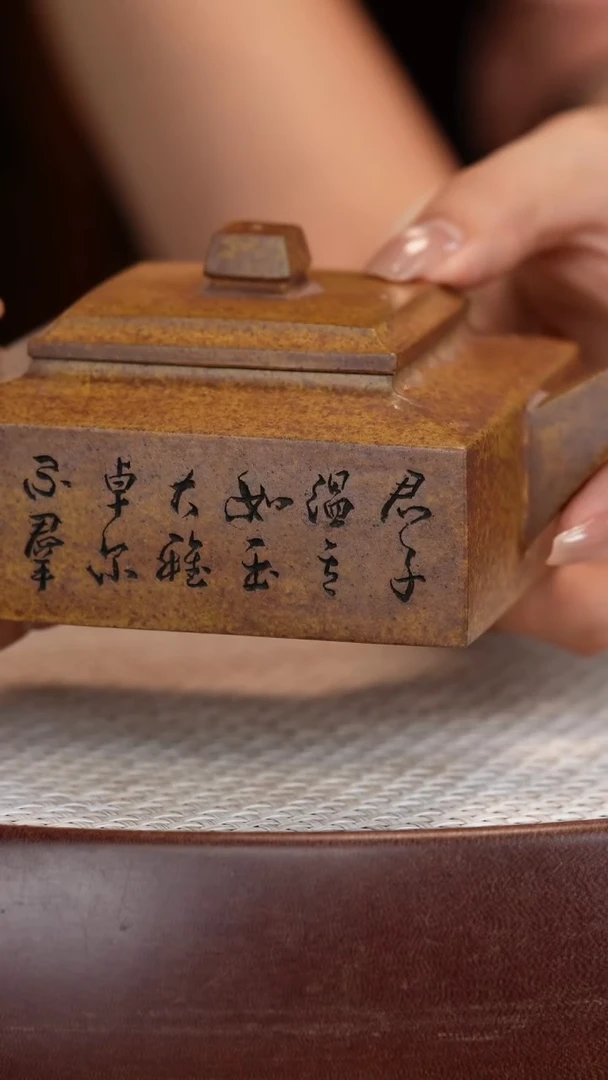 君子
温其
如玉
大雅
卓尔
不羣